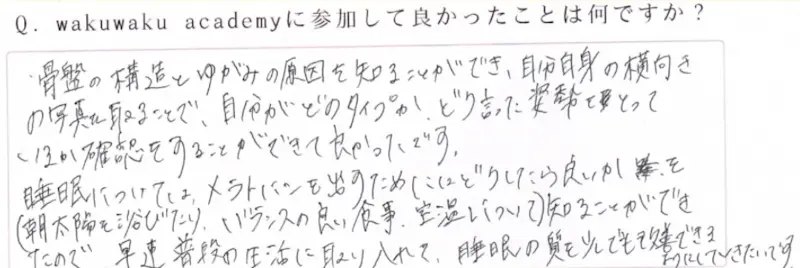 Q. wakuwaku academyに参加して良かったことは何ですか?
骨盤の構造とゆがみの原因を知ることができ、自分自身の横向き
の写真を取ることで、自分がどのタイプか、どう言った姿勢をとって
いるか確認をすることができて良かったです。
睡眠については、メラトニンを出すためにはどうしたら良いか を
(朝太陽を浴びたり、バランスの良い食事、室温について)知ることができ
たので、早速普段の生活に取り入れて、睡眠の質を少しでも改善できる
ようにしていきたいです